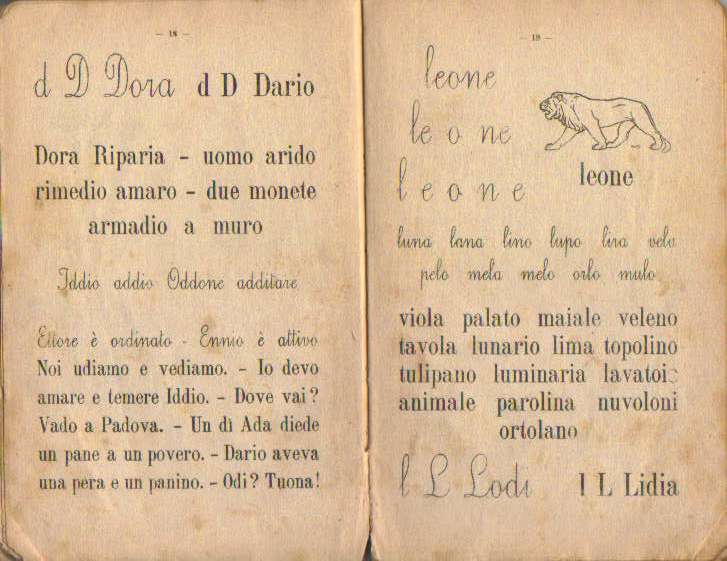 - 18 -
d D Dora d D Dario
Dora Riparia - uomo arido
rimedio amaro - due monete
armadio a muro
Iddio addio Oddone additare
Ettore è ordinato - Ennio è attivo
Noi udiamo e vediamo. - Io devo
amare e temere Iddio. - Dove vai?
Vado a Padova. - Un dì Ada diede
un pane a un povero. - Dario aveva
una pera e un panino. - Odi? Tuona!
- 19 -
leone
le o ne
l e o n e
leone
luna lana lino lupo lira velo
pelo mela melo orlo mulo
viola palato maiale veleno
tavola lunario lima topolino
tulipano luminaria lavatoio
animale parolina nuvoloni
ortolano
l L Lodi l L Lidia